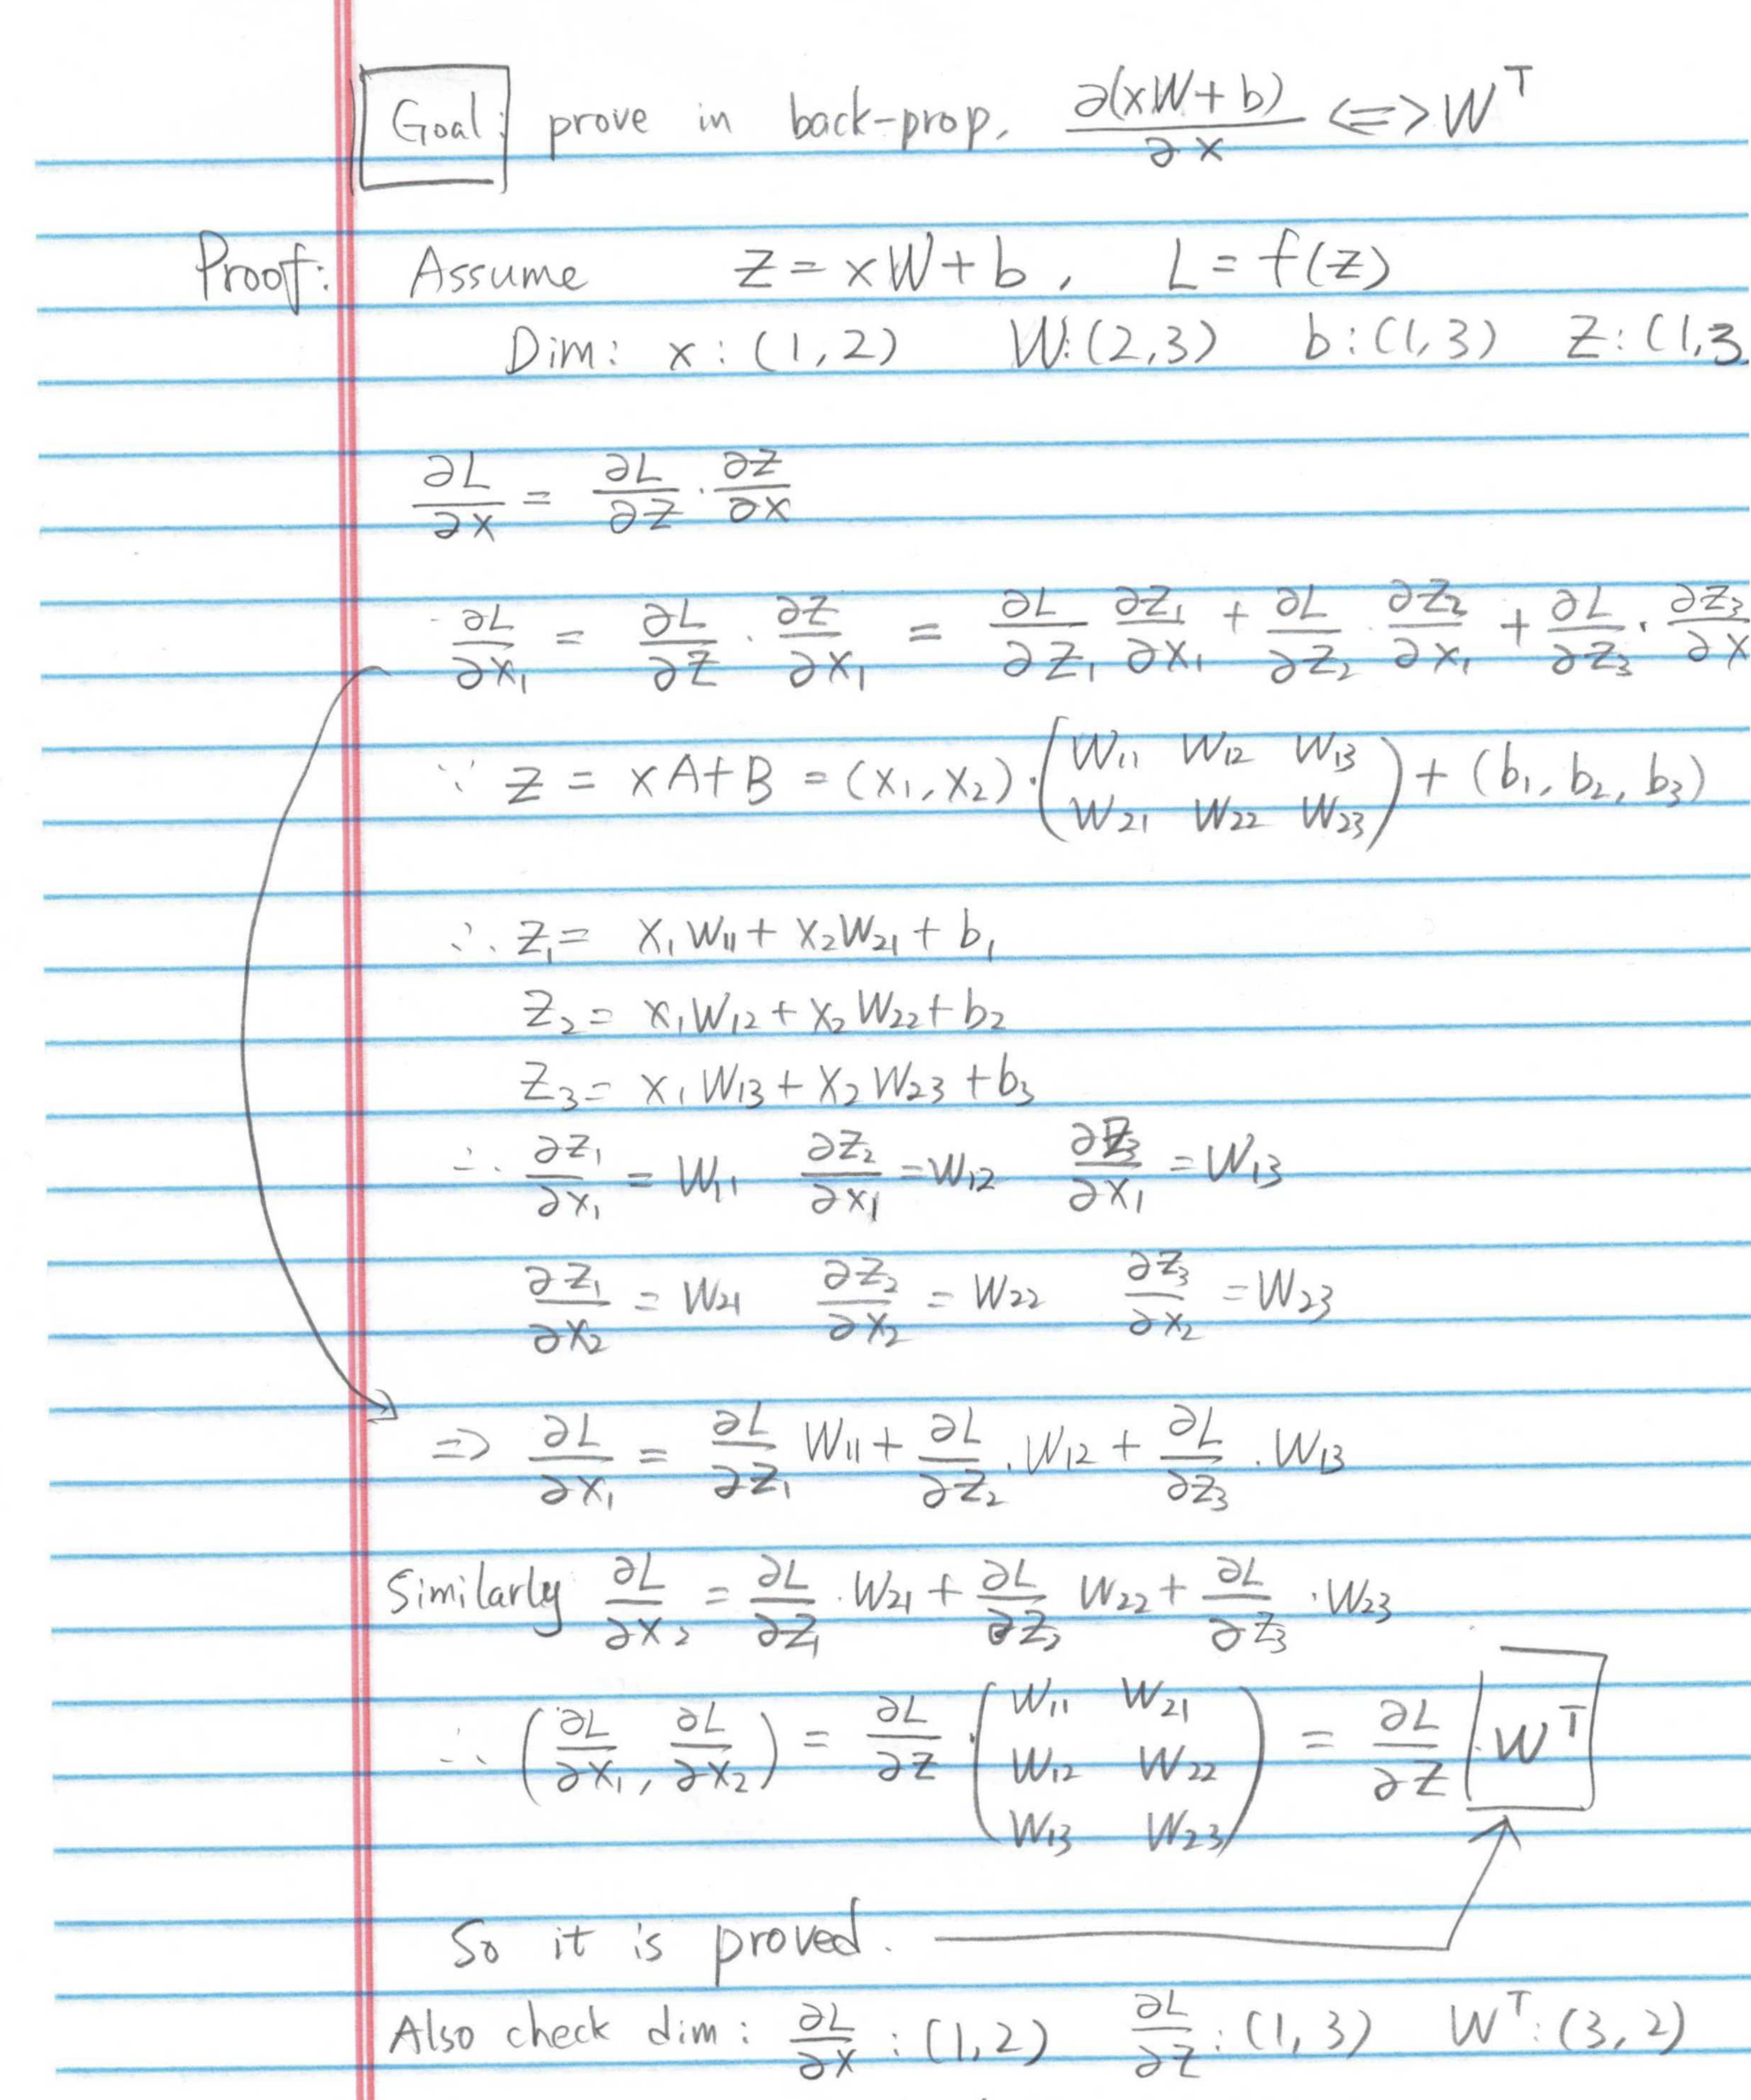 Goal: prove in back-prop, ∂(xW+b)/∂x <=> W^T
Proof: Assume z = xW+b, L = f(z)
Dim: x:(1,2) W:(2,3) b:(1,3) z:(1,3
∂L/∂x = ∂L/∂z · ∂z/∂x
∂L/∂x₁ = ∂L/∂z · ∂z/∂x₁ = ∂L/∂z₁ ∂z₁/∂x₁ + ∂L/∂z₂ · ∂z₂/∂x₁ + ∂L/∂z₃ · ∂z₃/∂x
∵ z = xA+B = (x₁, x₂) · (W₁₁ W₁₂ W₁₃
W₂₁ W₂₂ W₂₃) + (b₁, b₂, b₃)
∴ z₁ = x₁W₁₁ + x₂W₂₁ + b₁
z₂ = x₁W₁₂ + x₂W₂₂ + b₂
z₃ = x₁W₁₃ + x₂W₂₃ + b₃
∴ ∂z₁/∂x₁ = W₁₁ ∂z₂/∂x₁ = W₁₂ ∂z₃/∂x₁ = W₁₃
∂z₁/∂x₂ = W₂₁ ∂z₂/∂x₂ = W₂₂ ∂z₃/∂x₂ = W₂₃
=> ∂L/∂x₁ = ∂L/∂z₁ W₁₁ + ∂L/∂z₂ · W₁₂ + ∂L/∂z₃ · W₁₃
Similarly ∂L/∂x₂ = ∂L/∂z₁ · W₂₁ + ∂L/∂z₂ W₂₂ + ∂L/∂z₃ · W₂₃
∴ (∂L/∂x₁, ∂L/∂x₂) = ∂L/∂z · (W₁₁ W₂₁
W₁₂ W₂₂
W₁₃ W₂₃) = ∂L/∂z · W^T
So it is proved.
Also check dim: ∂L/∂x : (1,2) ∂L/∂z : (1,3) W^T: (3,2)